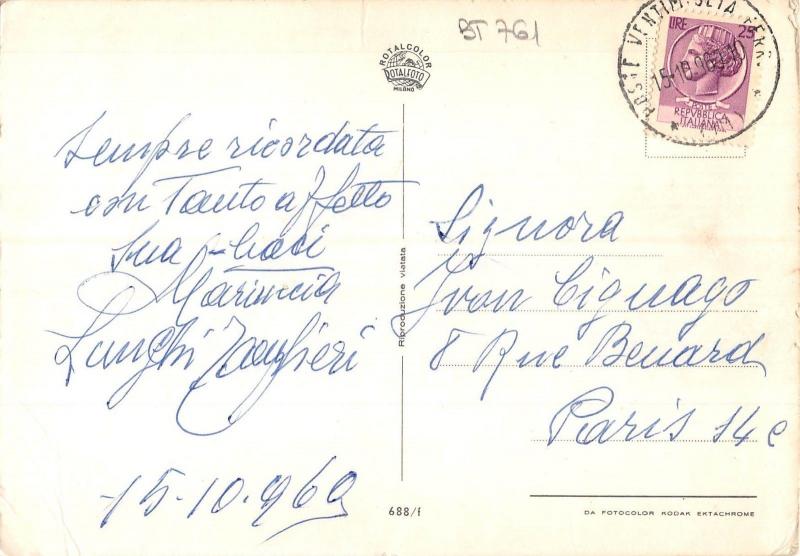 BT 761
ROTALCOLOR
ROTALFOTO
MILANO
LIRE 25
POSTE REPVBBLICA
ITALIANA
POSTE VENTIMIGLIA
15·10·969·10
Sempre ricordata
con Tanto affetto
Sua - baci
Longhi
15-10-969
Riproduzione vietata
Signora
Ivon Cignago
8 Rue Benard
Paris 14e
688/f
DA FOTOCOLOR KODAK EKTACHROME